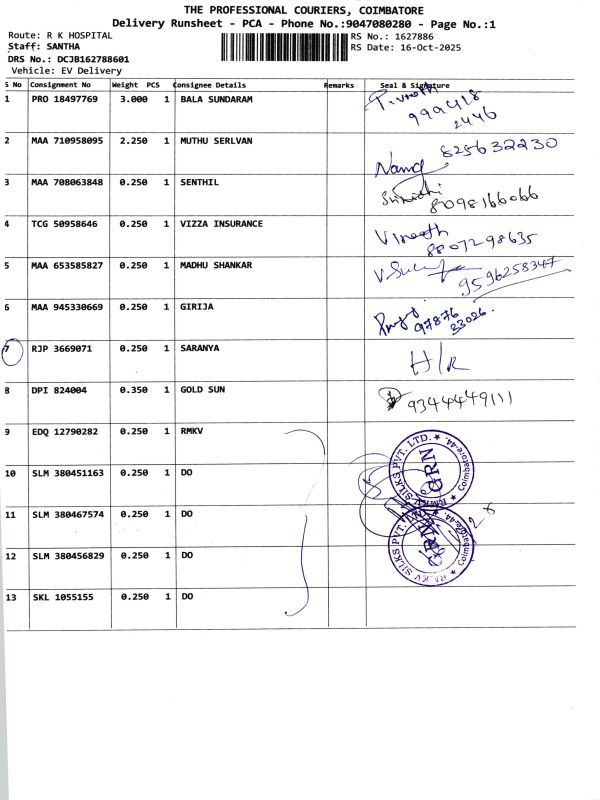 THE PROFESSIONAL COURIERS, COIMBATORE
Delivery Runsheet - PCA - Phone No.:9047080280 - Page No.:1
Route: R K HOSPITAL
RS No.: 1627886
Staff: SANTHA
RS Date: 16-Oct-2025
DRS No.: DCJB162788601
Vehicle: EV Delivery
S No Consignment No Weight PCS Consignee Details Remarks Seal & Signature
1 PRO 18497769 3.000 1 BALA SUNDARAM
999418
2446
2 MAA 710958095 2.250 1 MUTHU SERLVAN 825632230
3 MAA 708063848 0.250 1 SENTHIL 8098166066
4 TCG 50958646 0.250 1 VIZZA INSURANCE Vineeth
8807298635
5 MAA 653585827 0.250 1 MADHU SHANKAR 9596258347
6 MAA 945330669 0.250 1 GIRIJA 97876
33026.
7 RJP 3669071 0.250 1 SARANYA H/R
8 DPI 824004 0.350 1 GOLD SUN 9344449111
9 EDQ 12790282 0.250 1 RMKV
10 SLM 380451163 0.250 1 DO
11 SLM 380467574 0.250 1 DO
12 SLM 380456829 0.250 1 DO
13 SKL 1055155 0.250 1 DO
RMKV SILKS PVT. LTD. ★ Coimbatore-44. ★
GRN
RMKV SILKS PVT. LTD. ★ Coimbatore-44. ★
GRN